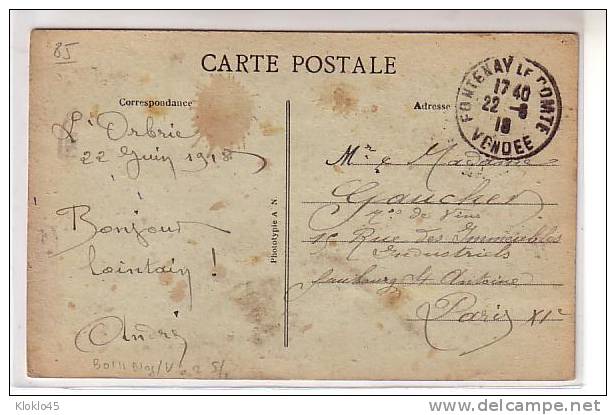 85
CARTE POSTALE
Correspondance
Adresse
FONTENAY LE COMTE
17 40
22 - 6
18
VENDEE
L'Orbrie
22 Juin 1918
Bonjour
lointain !
André
Phototypie A. N.
Mr & Madame
Gaucher
Mds de Vins
Rue des Immeubles
Industriels
faubourg St Antoine
Paris XIe
Kloklo45
delcampe.net